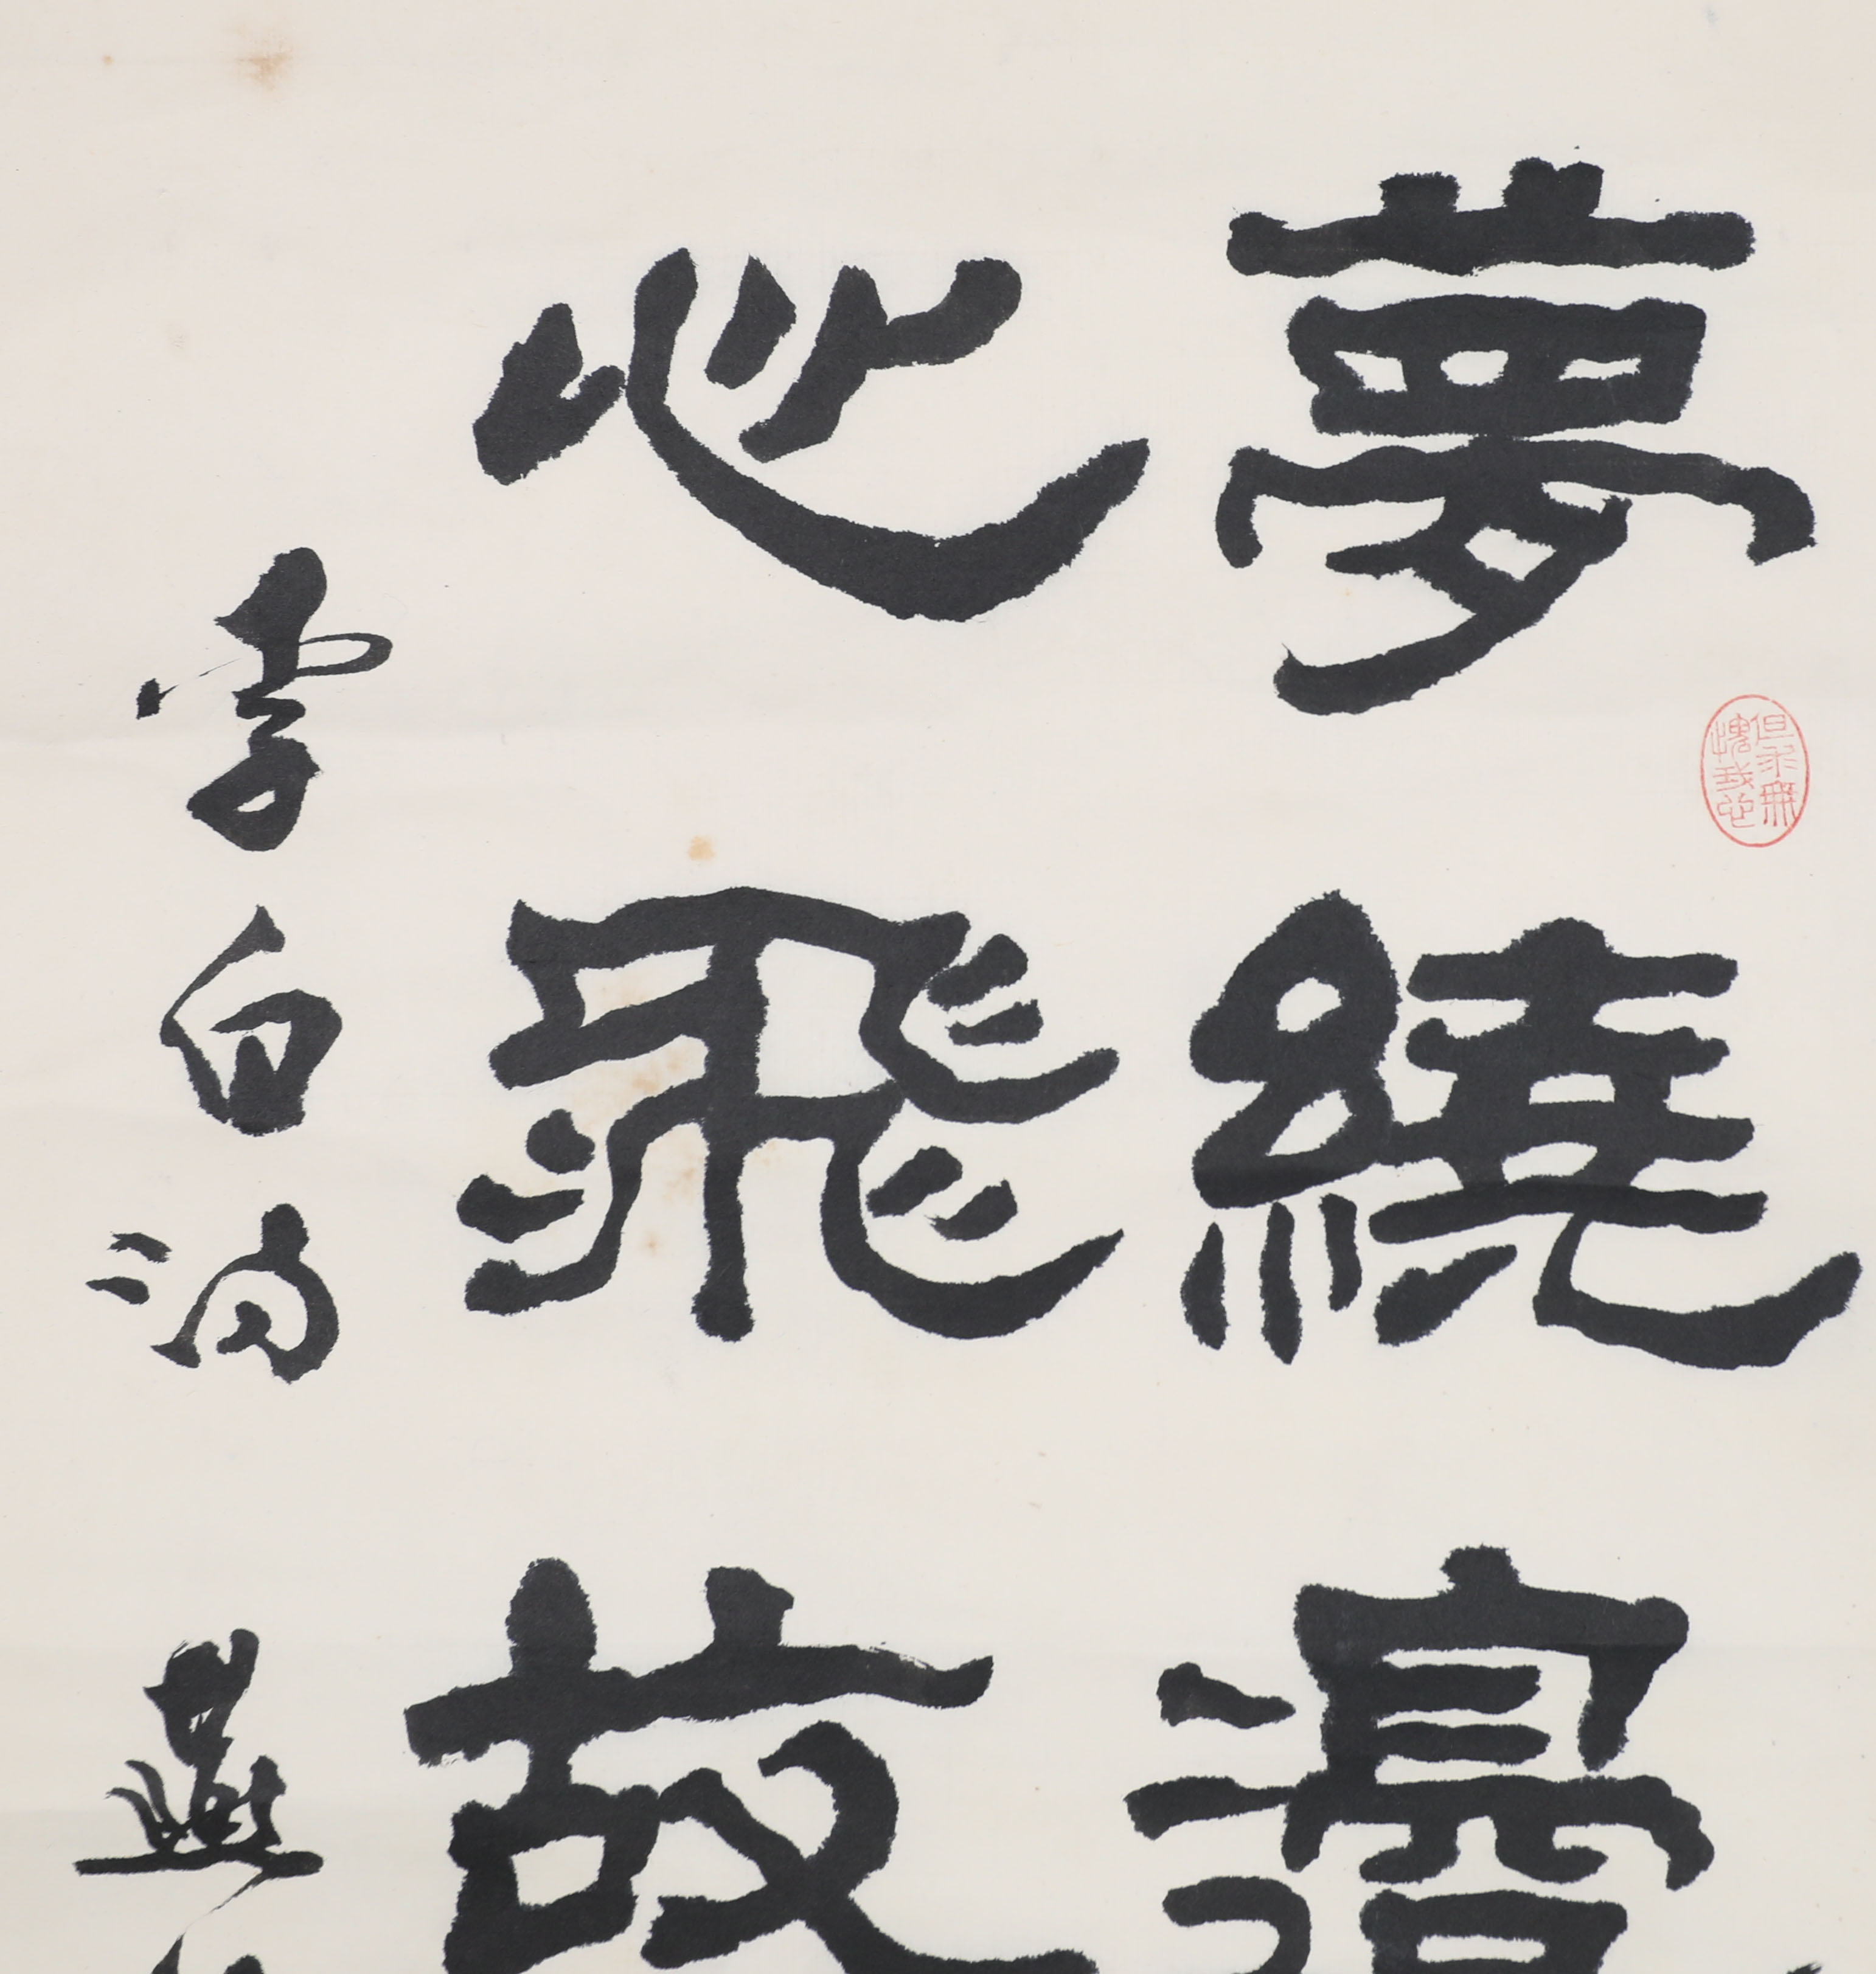 但求無
愧我心
夢繞邊
心飛故
李白
燕